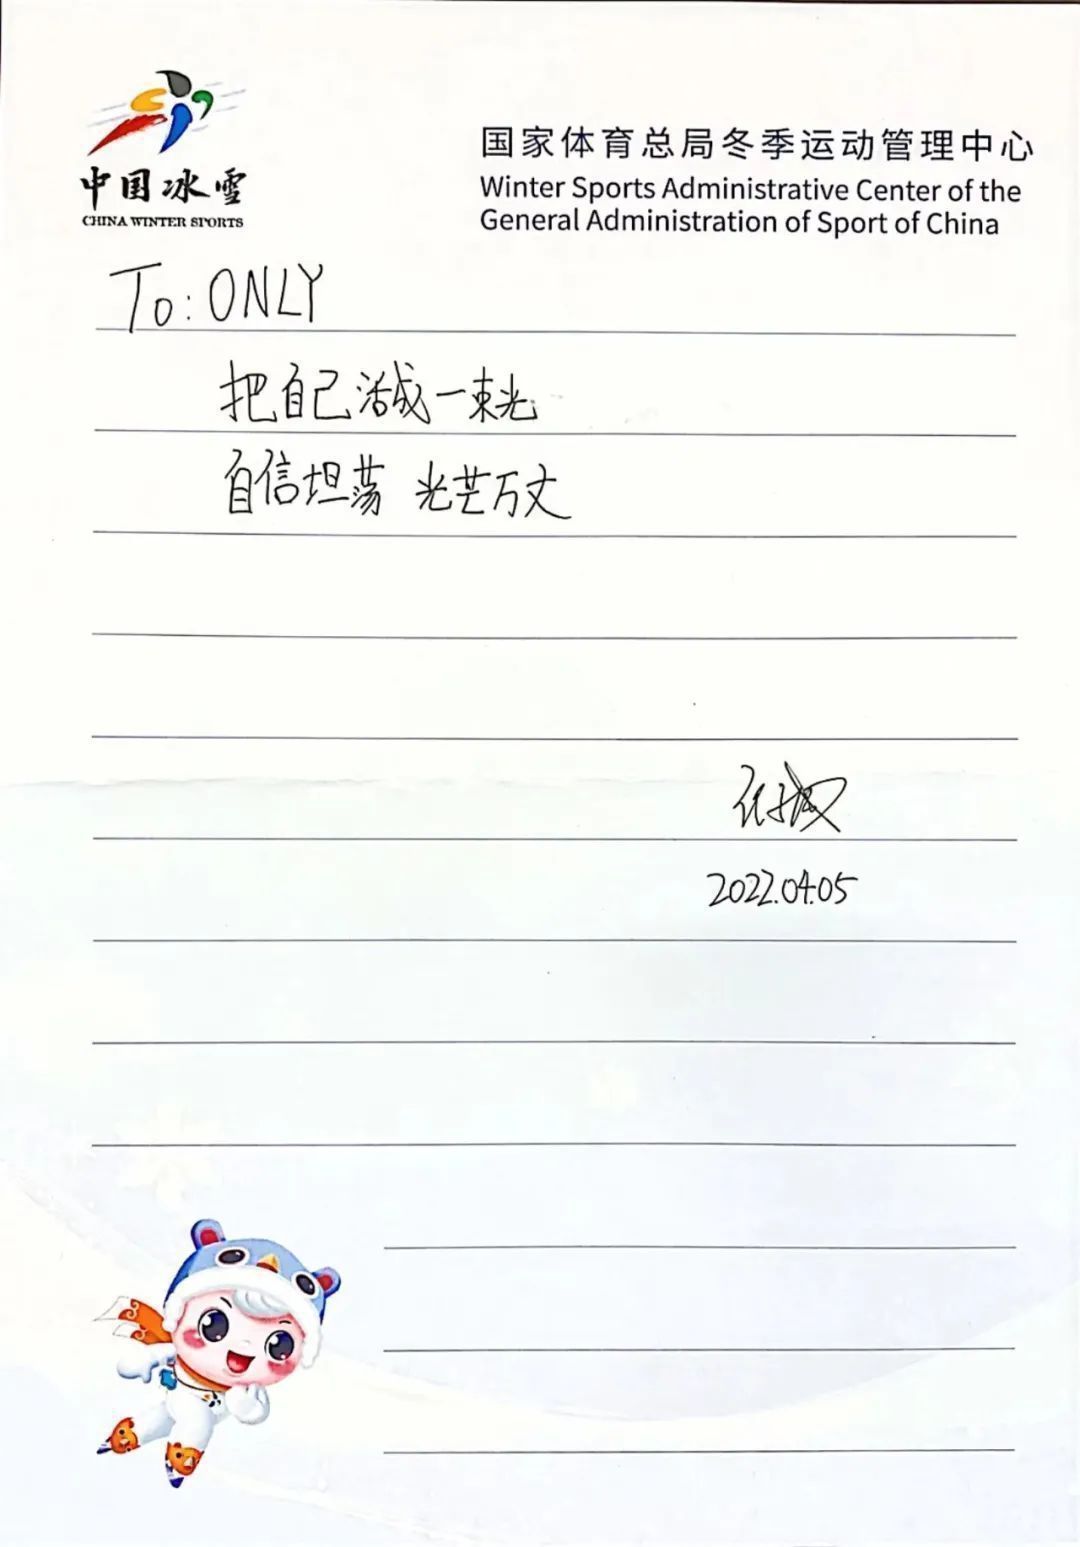 中国冰雪
CHINA WINTER SPORTS
国家体育总局冬季运动管理中心
Winter Sports Administrative Center of the
General Administration of Sport of China
To: ONLY
把自己活成一束光
自信坦荡 光芒万丈
2022.04.05